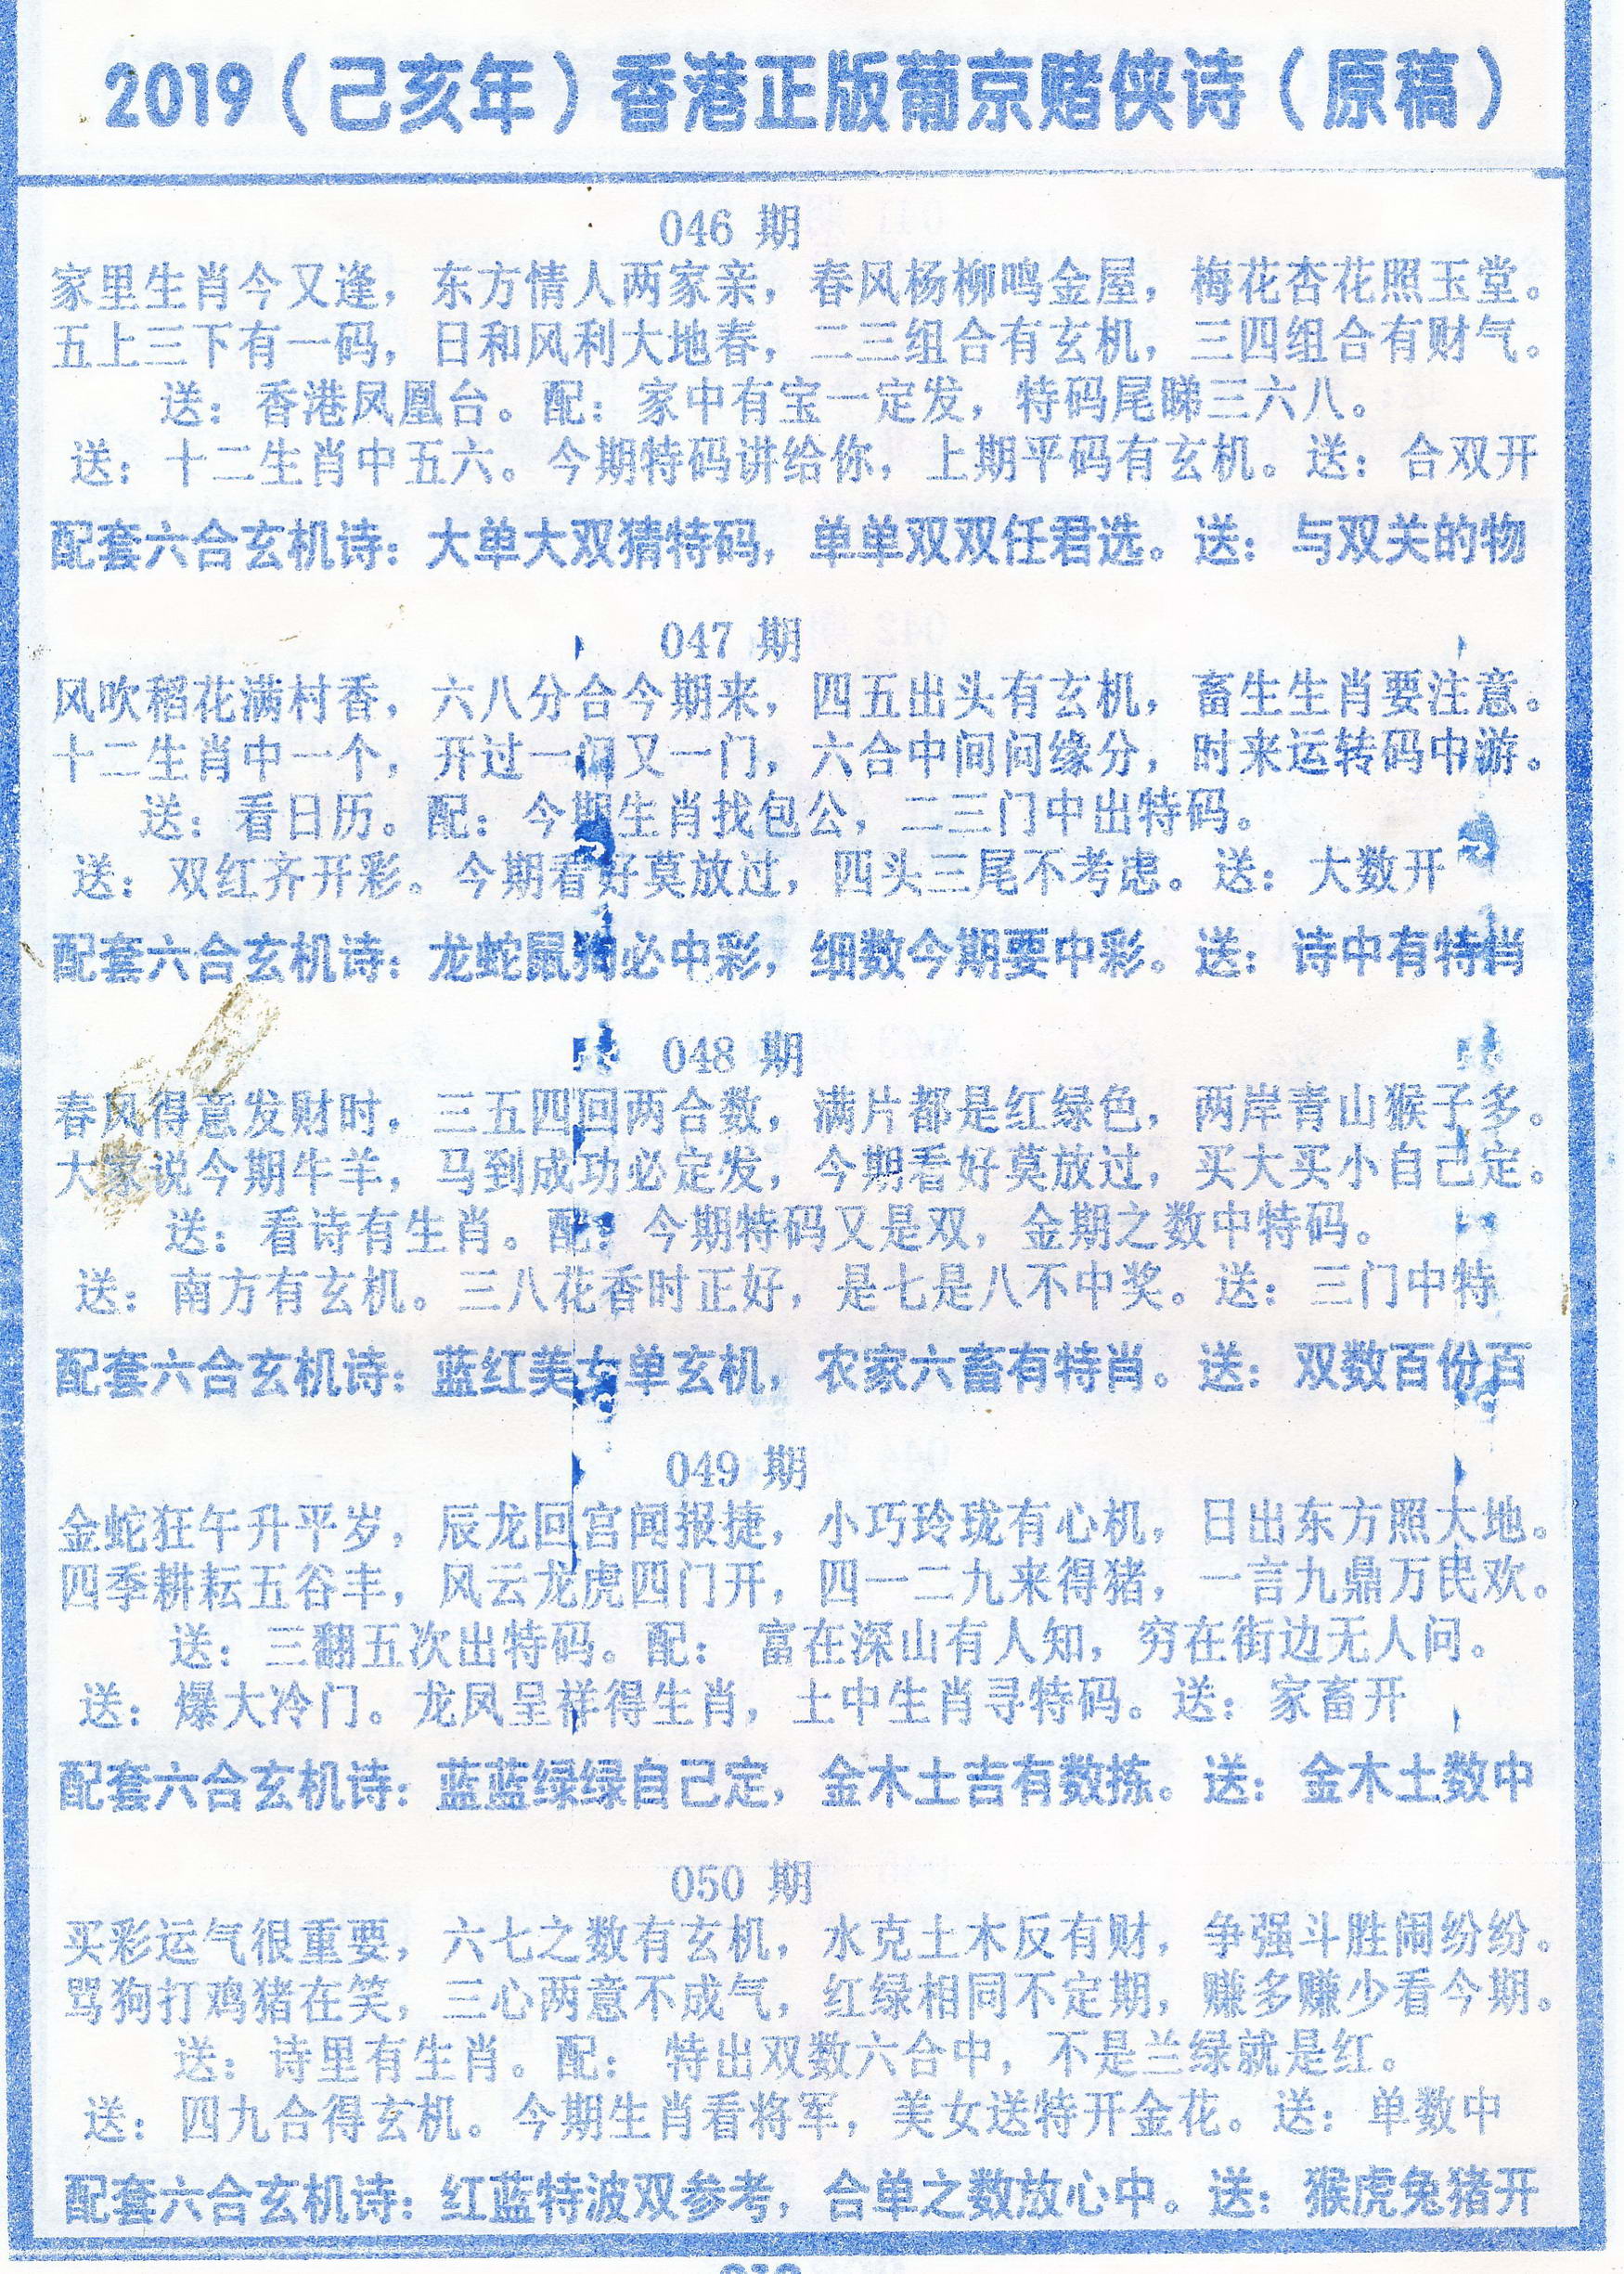 2019（己亥年）香港正版葡京赌侠诗（原稿）
046 期
家里生肖今又逢，东方情人两家亲，春风杨柳鸣金屋，梅花杏花照玉堂。
五上三下有一码，日和风利大地春，二三组合有玄机，三四组合有财气。
送：香港凤凰台。配：家中有宝一定发，特码尾睇三六八。
送：十二生肖中五六。今期特码讲给你，上期平码有玄机。送：合双开
配套六合玄机诗：大单大双猜特码，单单双双任君选。送：与双关的物
047 期
风吹稻花满村香，六八分合今期来，四五出头有玄机，畜生生肖要注意。
十二生肖中一个，开过一门又一门，六合中间问缘分，时来运转码中游。
送：看日历。配：今期生肖找包公，二三门中出特码。
送：双红齐开彩。今期看好莫放过，四头三尾不考虑。送：大数开
配套六合玄机诗：龙蛇鼠狗必中彩，细数今期要中彩。送：诗中有特肖
048 期
春风得意发财时，三五四回两合数，满片都是红绿色，两岸青山猴子多。
大家说今期牛羊，马到成功必定发，今期看好莫放过，买大买小自己定。
送：看诗有生肖。配：今期特码又是双，金期之数中特码。
送：南方有玄机。三八花香时正好，是七是八不中奖。送：三门中特
配套六合玄机诗：蓝红美女单玄机，农家六畜有特肖。送：双数百份百
049 期
金蛇狂午升平岁，辰龙回宫闻报捷，小巧玲珑有心机，日出东方照大地。
四季耕耘五谷丰，风云龙虎四门开，四一二九来得猪，一言九鼎万民欢。
送：三翻五次出特码。配：富在深山有人知，穷在街边无人问。
送：爆大冷门。龙凤呈祥得生肖，土中生肖寻特码。送：家畜开
配套六合玄机诗：蓝蓝绿绿自己定，金木土吉有数拣。送：金木土数中
050 期
买彩运气很重要，六七之数有玄机，水克土木反有财，争强斗胜闹纷纷。
骂狗打鸡猪在笑，三心两意不成气，红绿相同不定期，赚多赚少看今期。
送：诗里有生肖。配：特出双数六合中，不是兰绿就是红。
送：四九合得玄机。今期生肖看将军，美女送特开金花。送：单数中
配套六合玄机诗：红蓝特波双参考，合单之数放心中。送：猴虎兔猪开